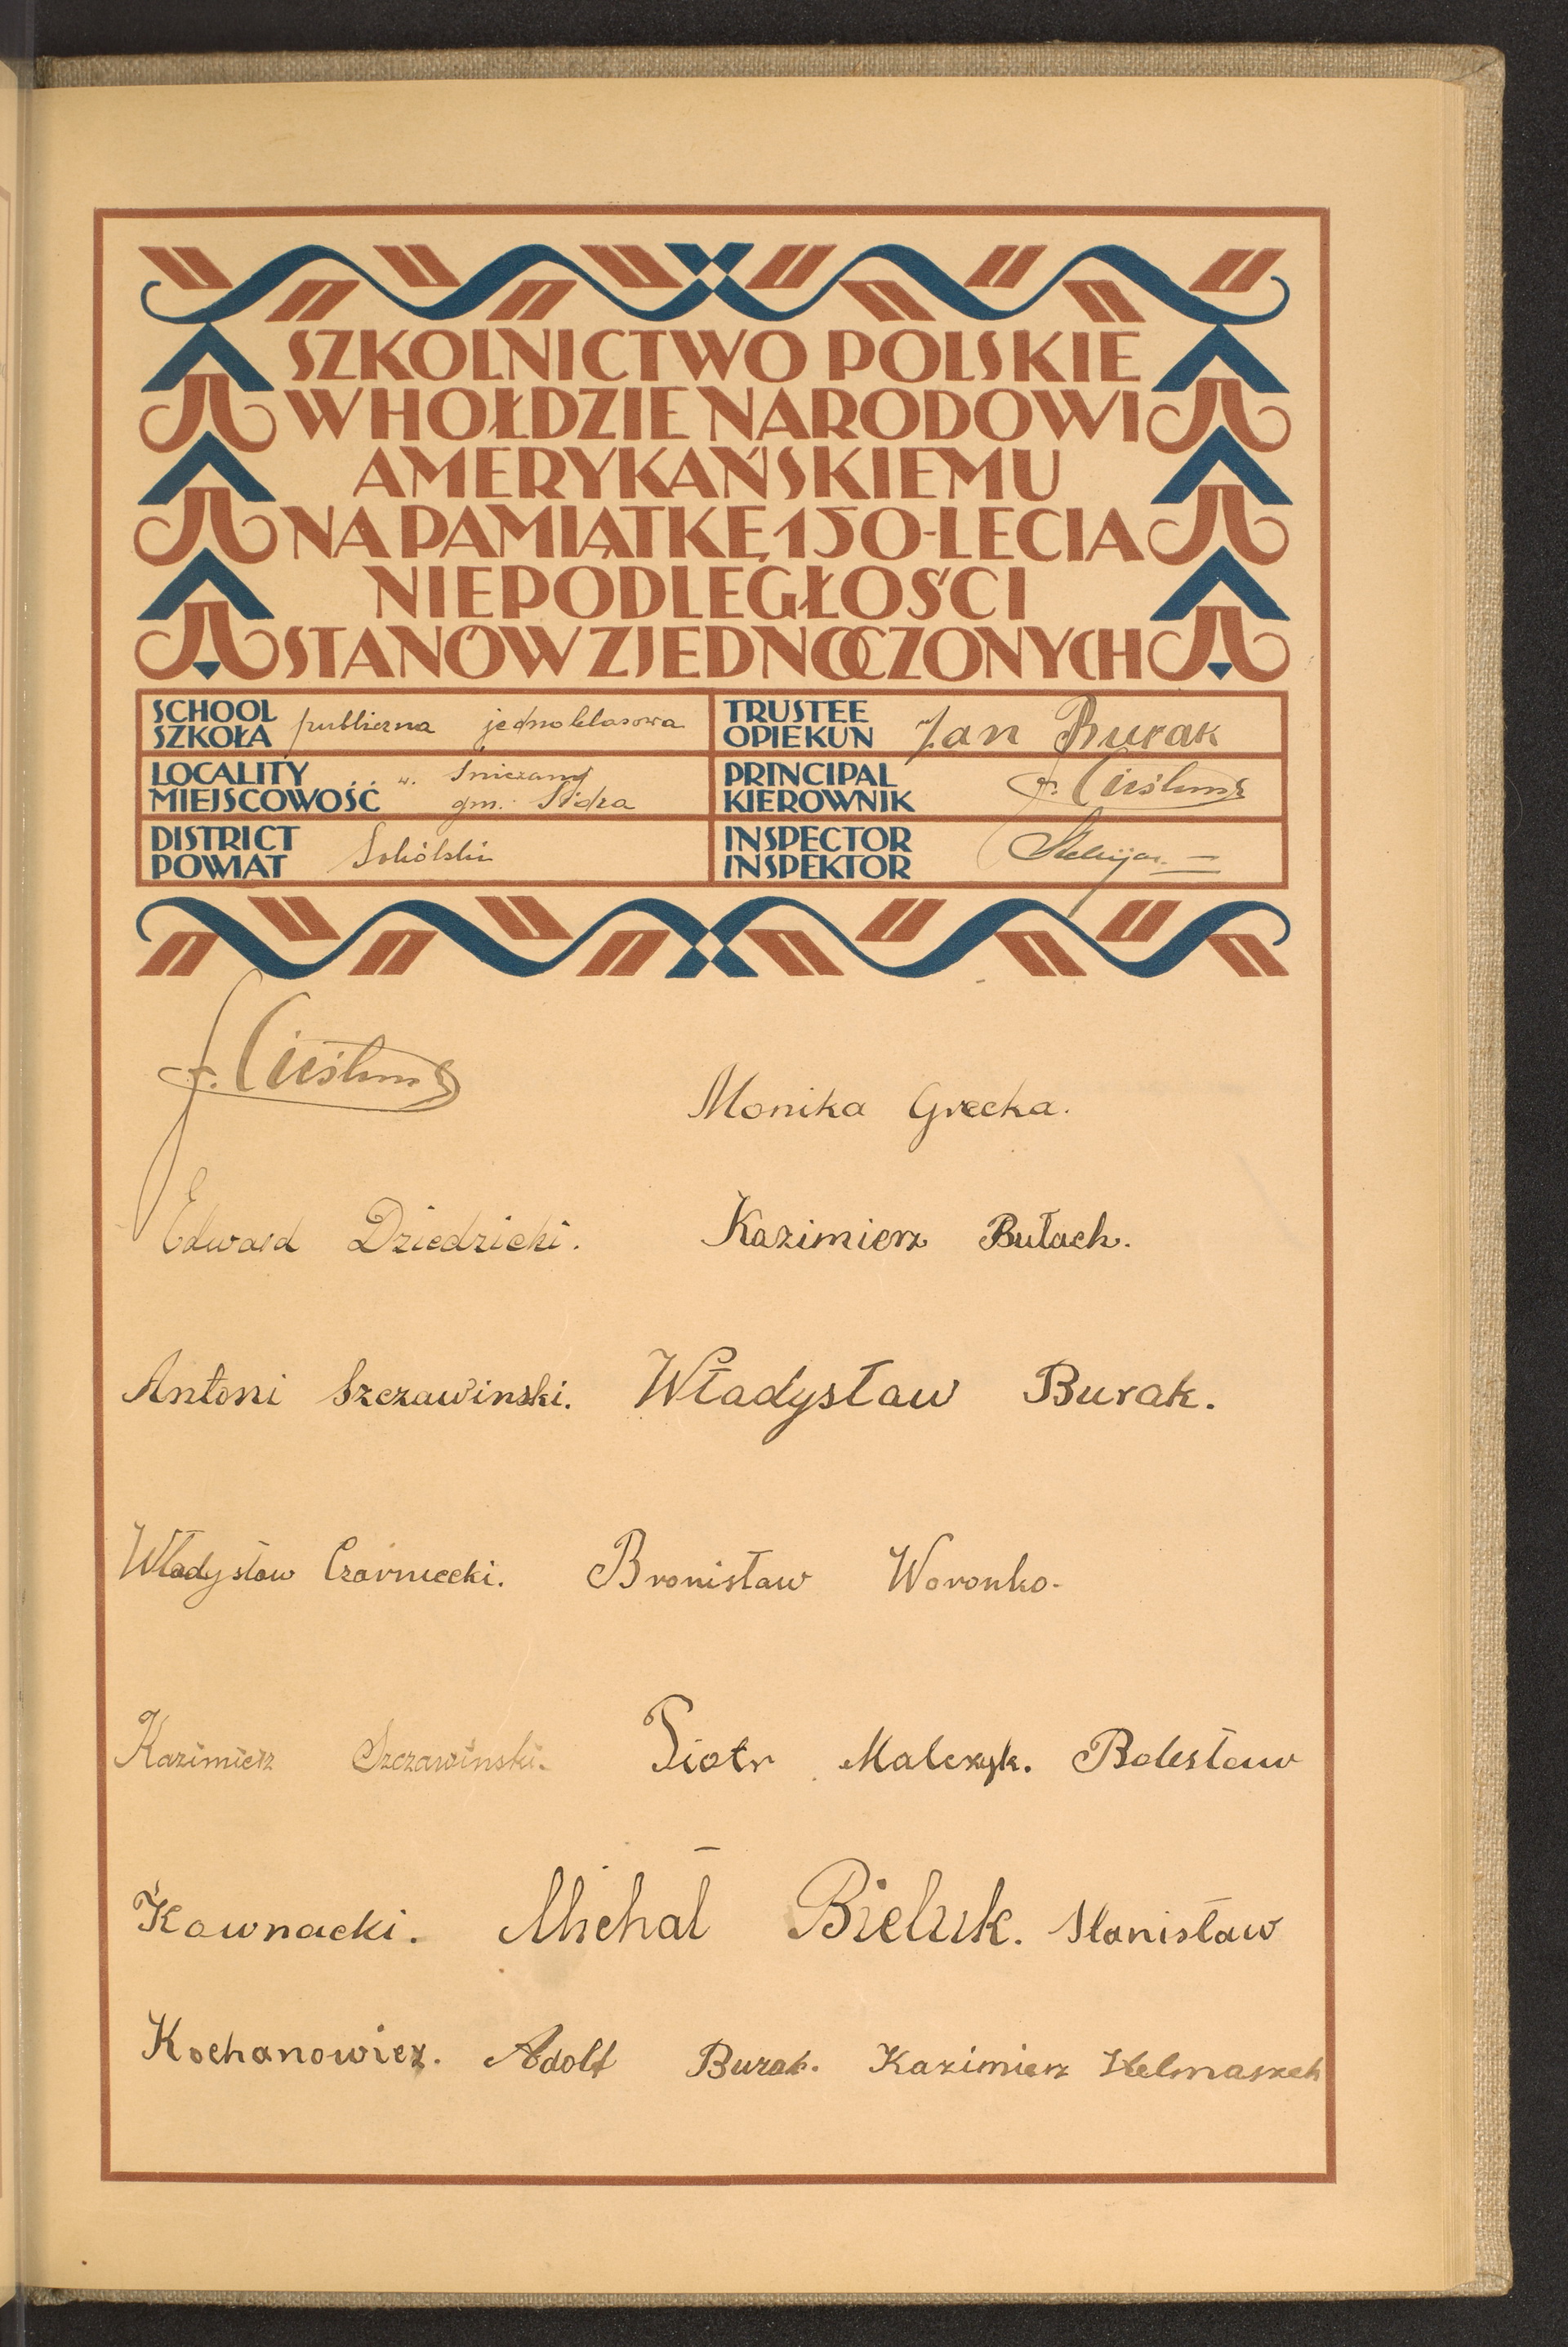 SZKOLNICTWO POLSKIE
W HOŁDZIE NARODOWI
AMERYKAŃSKIEMU
NA PAMIĄTKĘ 150-LECIA
NIEPODLEGŁOŚCI
STANÓW ZJEDNOCZONYCH
SCHOOL
SZKOŁA publiczna jednoklasowa
TRUSTEE
OPIEKUN Jan Burak
LOCALITY
MIEJSCOWOŚĆ w.
gm. Sidra
PRINCIPAL
KIEROWNIK
DISTRICT
POWIAT Sokólski
INSPECTOR
INSPEKTOR
Monika Grecka.
Edward Dziedzicki. Kazimierz Bułach.
Antoni Szczawinski. Władysław Burak.
Władysław Czarniecki. Bronisław Woronko.
Kazimierz Szczawinski. Piotr Malczyk. Bolesław
Kownacki. Michał Bieluk. Stanisław
Kochanowicz. Adolf Burak. Kazimierz